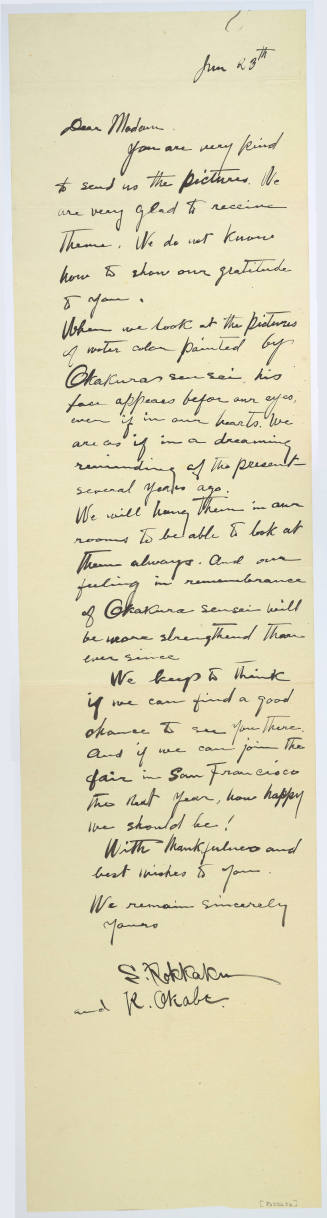 Jun 23th
Dear Madam.
You are very kind
to send us the pictures. We
are very glad to receive
theme. We do not know
how to show our gratitude
to you.
When we look at the pictures
of water color painted by
Okakura sensei, his
face appears before our eyes,
even if in our hearts. We
are as if in a dreaming
reminding of the present
several years ago.
We will hang them in our
rooms to be able to look at
them always. And our
feeling in remembrance
of Okakura sensei will
be more strengthend than
ever since
We keep to think
if we can find a good
chance to see you there.
And if we can join the
fair in San Francisco
the next year, how happy
we should be!
With thankfulness and
best wishes to you.
We remain sincerely
yours
S. Rokkaku
and K. Okabe.